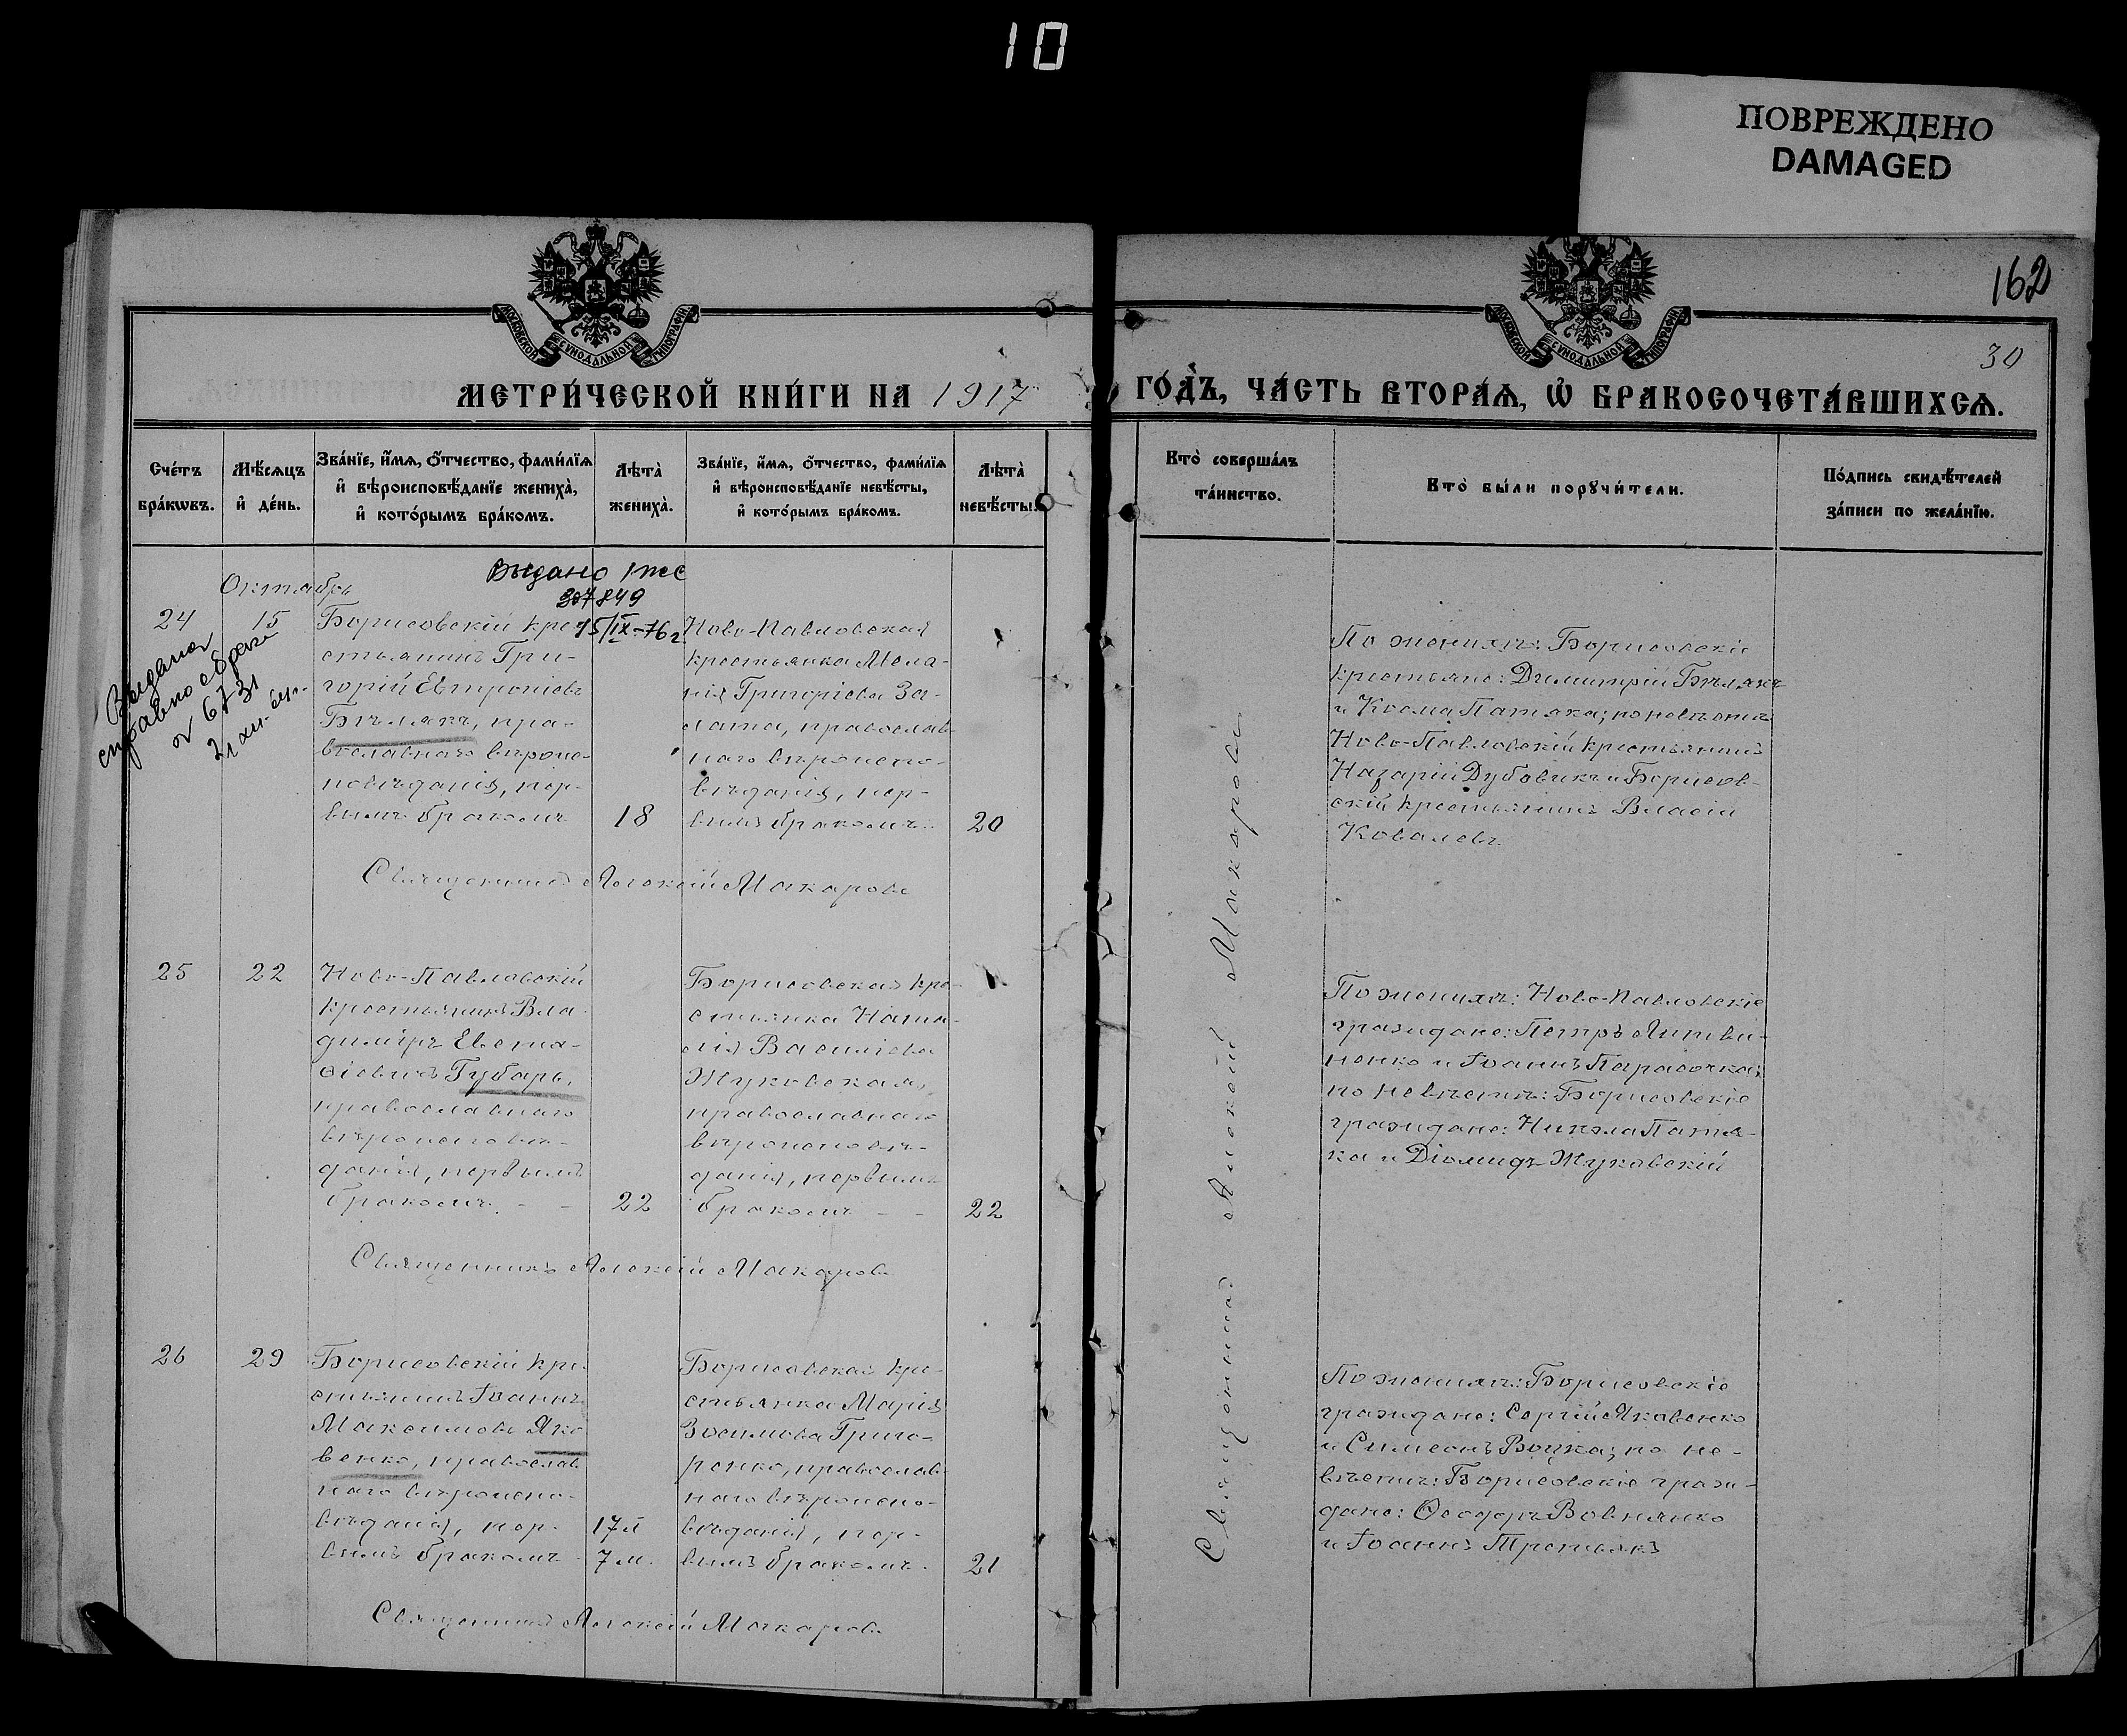 10
ПОВРЕЖДЕНО
DAMAGED
162
30
МОСКОВСКОЙ СѴНОДАЛЬНОЙ ТИПОГРАФІИ
МОСКОВСКОЙ СѴНОДАЛЬНОЙ ТИПОГРАФІИ
МЕТРИ́ЧЕСКОЙ КНИ́ГИ НА 1917
ГО́ДЪ, ЧА́СТЬ ВТОРА́Ѧ, Ѽ БРАКОСОЧЕТА́ВШИХСѦ.
Сче́тъ
бра́кѡвъ.
Мѣ́сѧцъ
и҆ де́нь.
Зва́нїе, и҆́мѧ, ѻ҆́тчество, фами́лїѧ
и҆ вѣроисповѣ́данїе жениха̀,
и҆ кото́рымъ бра́комъ.
Лѣта̀
жениха̀.
Зва́нїе, и҆́мѧ, ѻ҆́тчество, фами́лїѧ
и҆ вѣроисповѣ́данїе невѣ́сты,
и҆ кото́рымъ бра́комъ.
Лѣта̀
невѣ́сты.
Кто̀ соверша́лъ
та́инство.
Кто̀ бы́ли порꙋчи́тели.
По́дпись свидѣ́телей
за́писи по жела́нїю.
Октябрь
Выдано
307849
15/IX-76г
Выдана
справка о браке
24
15
Борисовскій кре-
стьянинъ Гри-
горій Евтропіевъ
Бѣлякъ, пра-
вославнаго вѣроис-
повѣданія, пер-
вымъ бракомъ
18
Ново-Павловская
крестьянка Мела-
нія Григоріева За-
лата, православ-
наго вѣроиспо-
вѣданія, пер-
вымъ бракомъ
20
По женихѣ: Борисовскіе
крестьяне: Димитрій Бѣлякъ
и Косма Патяка; по невѣстѣ:
Ново-Павловскій крестьянинъ
Назарій Дубовикъ и Борисов-
скій крестьянинъ Власій
Ковалевъ.
Священникъ Алексій Макаровъ
25
22
Ново-Павловскій
крестьянинъ Вла-
димиръ Евста-
ѳіевичъ Губарь,
православнаго
вѣроисповѣ-
данія, первымъ
бракомъ - -
22
Борисовская кре-
стьянка Ната-
лія Васильева
Жуковская,
православнаго
вѣроисповѣ-
данія, первымъ
бракомъ - -
22
По женихѣ: Ново-Павловскіе
граждане: Петръ Литви-
ненко и Іоаннъ Парасочка;
по невѣстѣ: Борисовскіе
граждане: Никола Патя-
ка и Діомидъ Жуковскій
Священникъ Алексій Макаровъ
26
29
Борисовскій кре-
стьянинъ Іоаннъ
Максимовъ Яко-
венко, православ-
наго вѣроиспо-
вѣданія, пер-
вымъ бракомъ
17 л
7 м.
Борисовская кре-
стьянка Марія
Зосимова Григо-
ренко, православ-
наго вѣроиспо-
вѣданія, пер-
вымъ бракомъ.
21
По женихѣ: Борисовскіе
граждане: Сергій Яковенко
и Симеонъ Воцка; по не-
вѣстѣ: Борисовскіе граж-
дане: Ѳеодоръ Вовнянко
и Іоаннъ Третьякъ
Священникъ Алексій Макаровъ
Священникъ Алексій Макаровъ